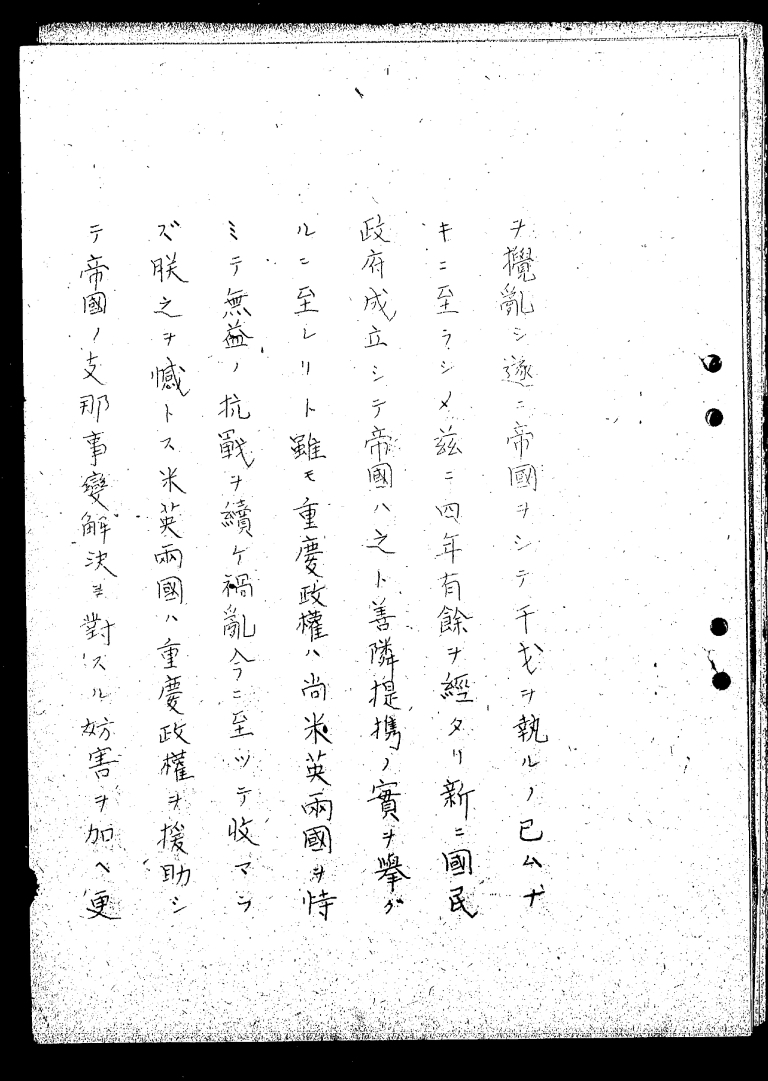 ヲ攪亂シ遂ニ帝國ヲシテ干戈ヲ執ルノ已ムナ
キニ至ラシメ茲ニ四年有餘ヲ經タリ新ニ國民
政府成立シテ帝國ハ之ト善隣提携ノ實ヲ擧ゲ
ルニ至レリト雖モ重慶政權ハ尚米英兩國ヲ恃
ミテ無益ノ抗戰ヲ續ケ禍亂今ニ至ッテ收マラ
ズ朕之ヲ憾トス米英兩國ハ重慶政權ヲ援助シ
テ帝國ノ支那事變解決ヲ對スル妨害ヲ加ヘ更